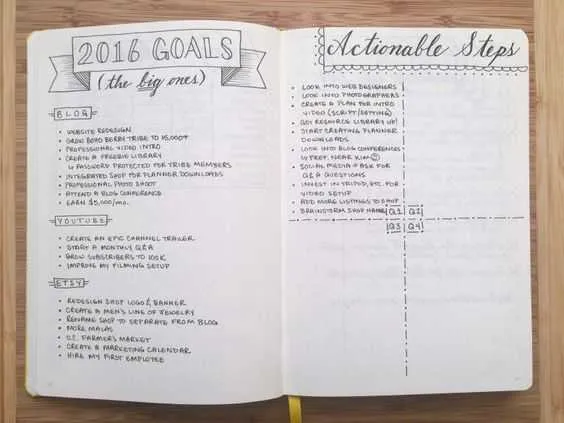 2016 GOALS
(the big ones)
BLOG
• WEBSITE REDESIGN
• GROW BOHO BERRY TRIBE TO 15,000+
• PROFESSIONAL VIDEO INTRO
• CREATE A FREEBIE LIBRARY
↳ PASSWORD PROTECTED FOR TRIBE MEMBERS
• INTEGRATED SHOP FOR PLANNER DOWNLOADS
• PROFESSIONAL PHOTO SHOOT
• ATTEND A BLOG CONFERENCE
• EARN $5,000/mo.
YOUTUBE
• CREATE AN EPIC CHANNEL TRAILER
• START A MONTHLY Q&A
• GROW SUBSCRIBERS TO 100K
• IMPROVE MY FILMING SETUP
ETSY
• REDESIGN SHOP LOGO & BANNER
• CREATE A MEN'S LINE OF JEWELRY
• RENAME SHOP TO SEPARATE FROM BLOG
• MORE MALAS
• O.C. FARMER'S MARKET
• CREATE A MARKETING CALENDAR
• HIRE MY FIRST EMPLOYEE
Actionable Steps
• LOOK INTO WEB DESIGNERS
• LOOK INTO PHOTOGRAPHERS
• CREATE A PLAN FOR INTRO
VIDEO (SCRIPT/SETTING)
• GET RESOURCE LIBRARY UP!
• START CREATING PLANNER
DOWNLOADS
• LOOK INTO BLOG CONFERENCES
↳ PREF. NEAR KIM ☺
• SOCIAL MEDIA → ASK FOR
Q&A QUESTIONS
• INVEST IN TRIPOD, ETC. FOR
VIDEO SETUP
• ADD MORE LISTINGS TO SHOP
• BRAINSTORM SHOP NAME
Q1 Q2
Q3 Q4